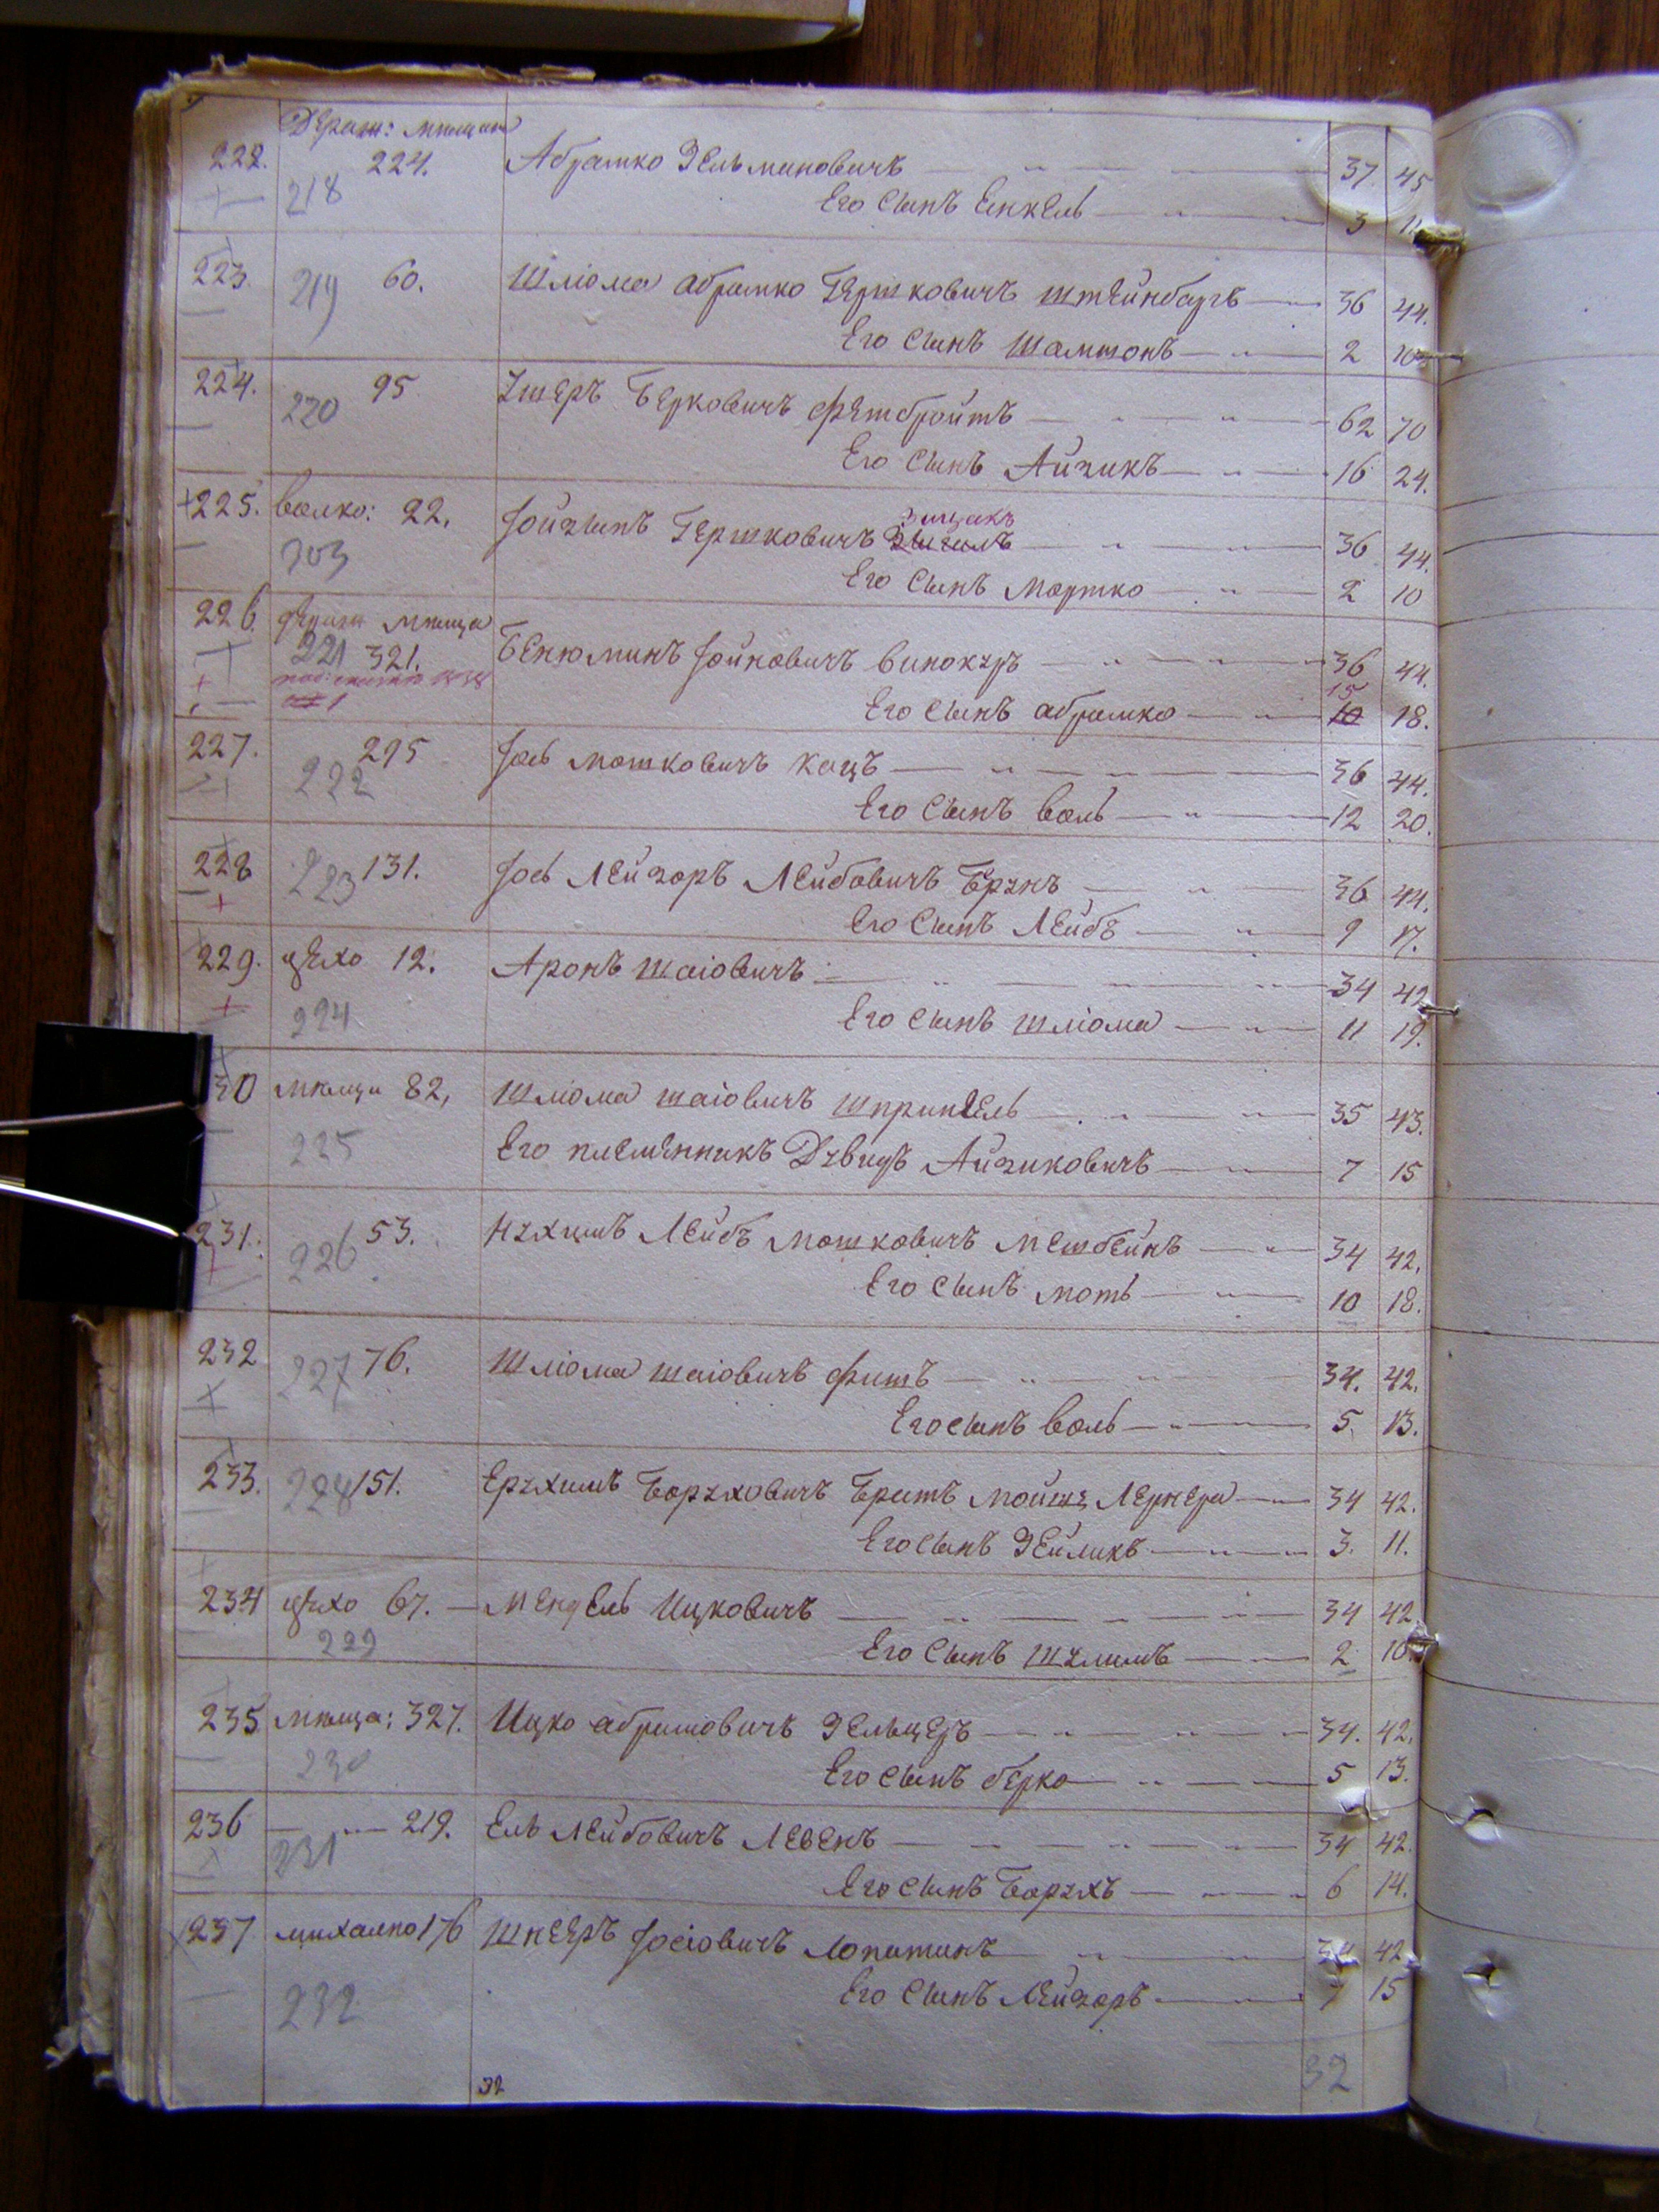 Дераж: мѣщан
222. 224. Абрамко Зельмановичъ 37 45
218 Его сынъ Енкель 3 11
223. 219 60. Шліома Абрамко Гершковичъ Штейнбаргъ 36 44.
Его сынъ Шамшонъ 2 10
224. 220 95 Ушеръ Берковичъ Фетбройтъ 62 70
Его сынъ Айзикъ 16 24.
225. Волко: 22. Іойзипъ Гершковичъ 36 44.
203 Его сынъ Мортко 2 10
226. Дераж мѣща
221 321. Бенюминъ Іойновичъ Винокуръ 36 44.
15
Его сынъ Абрамко 10 18.
227. 222 295 Іось Мошковичъ Кацъ 36 44.
Его сынъ Воль 12 20.
228 223 131. Іось Лейзоръ Лейбовичъ Брунъ 36 44.
Его сынъ Лейбъ 9 17.
229. цехо 12. Аронъ Шаіовичъ 34 42
224 Его сынъ Шліома 11 19.
30 мѣщи 82, Шліома Шаіовичъ Шпринцель 35 43.
225 Его племенникъ Дувидъ Айзиковичъ 7 15
231. 226 53. Нухимъ Лейбъ Мошковичъ Мешбейнъ 34 42.
Его сынъ Моть 10 18.
232 227 76. Шліома Шаіовичъ Фишъ 34. 42.
Его сынъ Воль 5. 13.
233. 228 151. Ерухимъ Боруховичъ Братъ Мойше Лернера 34 42.
Его сынъ Зейликъ 3. 11.
234 цехо 67. Мендель Ицковичъ 34 42
229 Его сынъ Шулимъ 2 10
235 мѣща: 327. Ицко Абрамовичъ Зельцеръ 34. 42.
230 Его сынъ Берко 5 13.
236 219. Ель Лейбовичъ Левенъ 34 42.
231 Его сынъ Борухъ 6 14.
237 михалпо 176 Шнееръ Іосіовичъ Лопатинъ 34 42
232 Его сынъ Лейзоръ 7 15
32
32